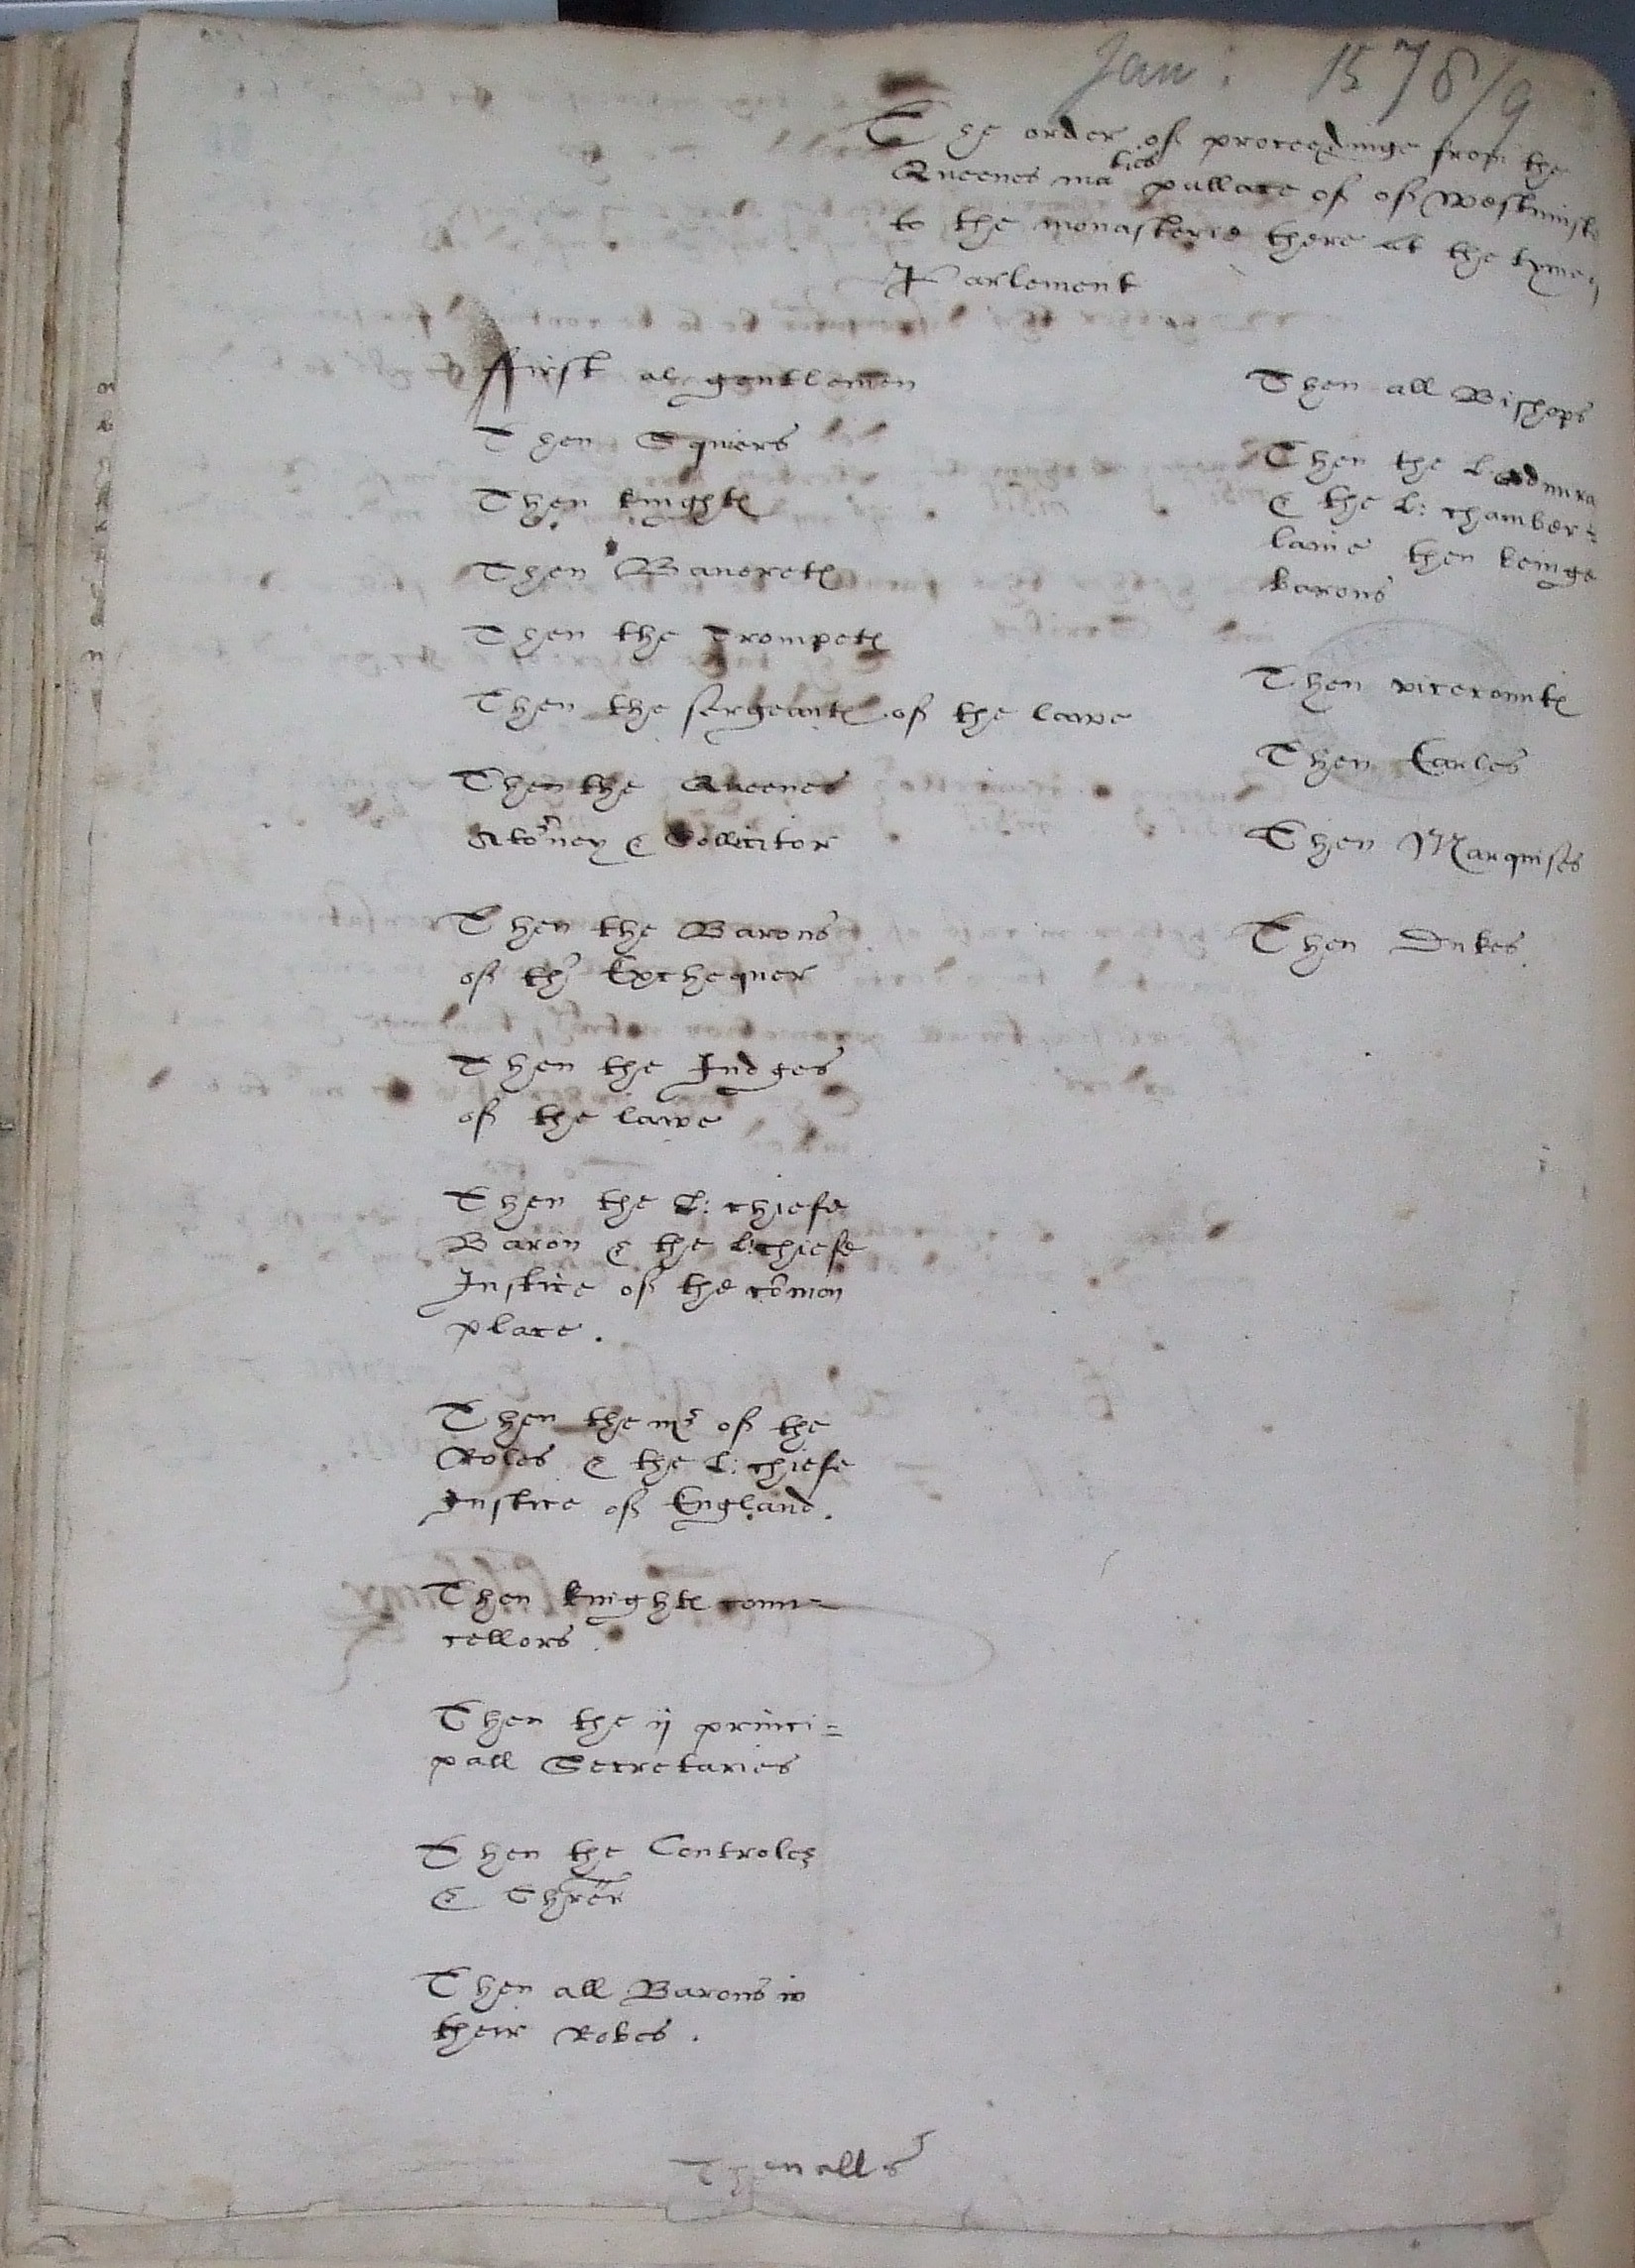 Jan: 1578/9
The order of proceedinge from the
Queenes maties pallace of of Westminste
to the monasterie there at the tyme
Parlement
ffirst al gentlemen
Then Squiers
Then knightes
Then Baneretes
Then the Trompetes
Then the sergeantes of the lawe
Then the Queenes
Atorney & Sollicitor
Then the Barons
of the Exchequer
Then the Judges
of the lawe
Then the L: chiefe
Baron & the L: chiefe
Justice of the comon
place.
Then the mr of the
Roles & the L: chiefe
Justice of England.
Then knightes coun=
cellors.
Then the ij princi=
pall Secretaries
Then the Controler
& Threr
Then all Barons in
their Robes.
Then all
Then all Bishops
Then the L: Admira
& the L: chamber=
laine then beinge
barons
Then vicecountes
Then Earles
Then Marquises
Then Dukes.